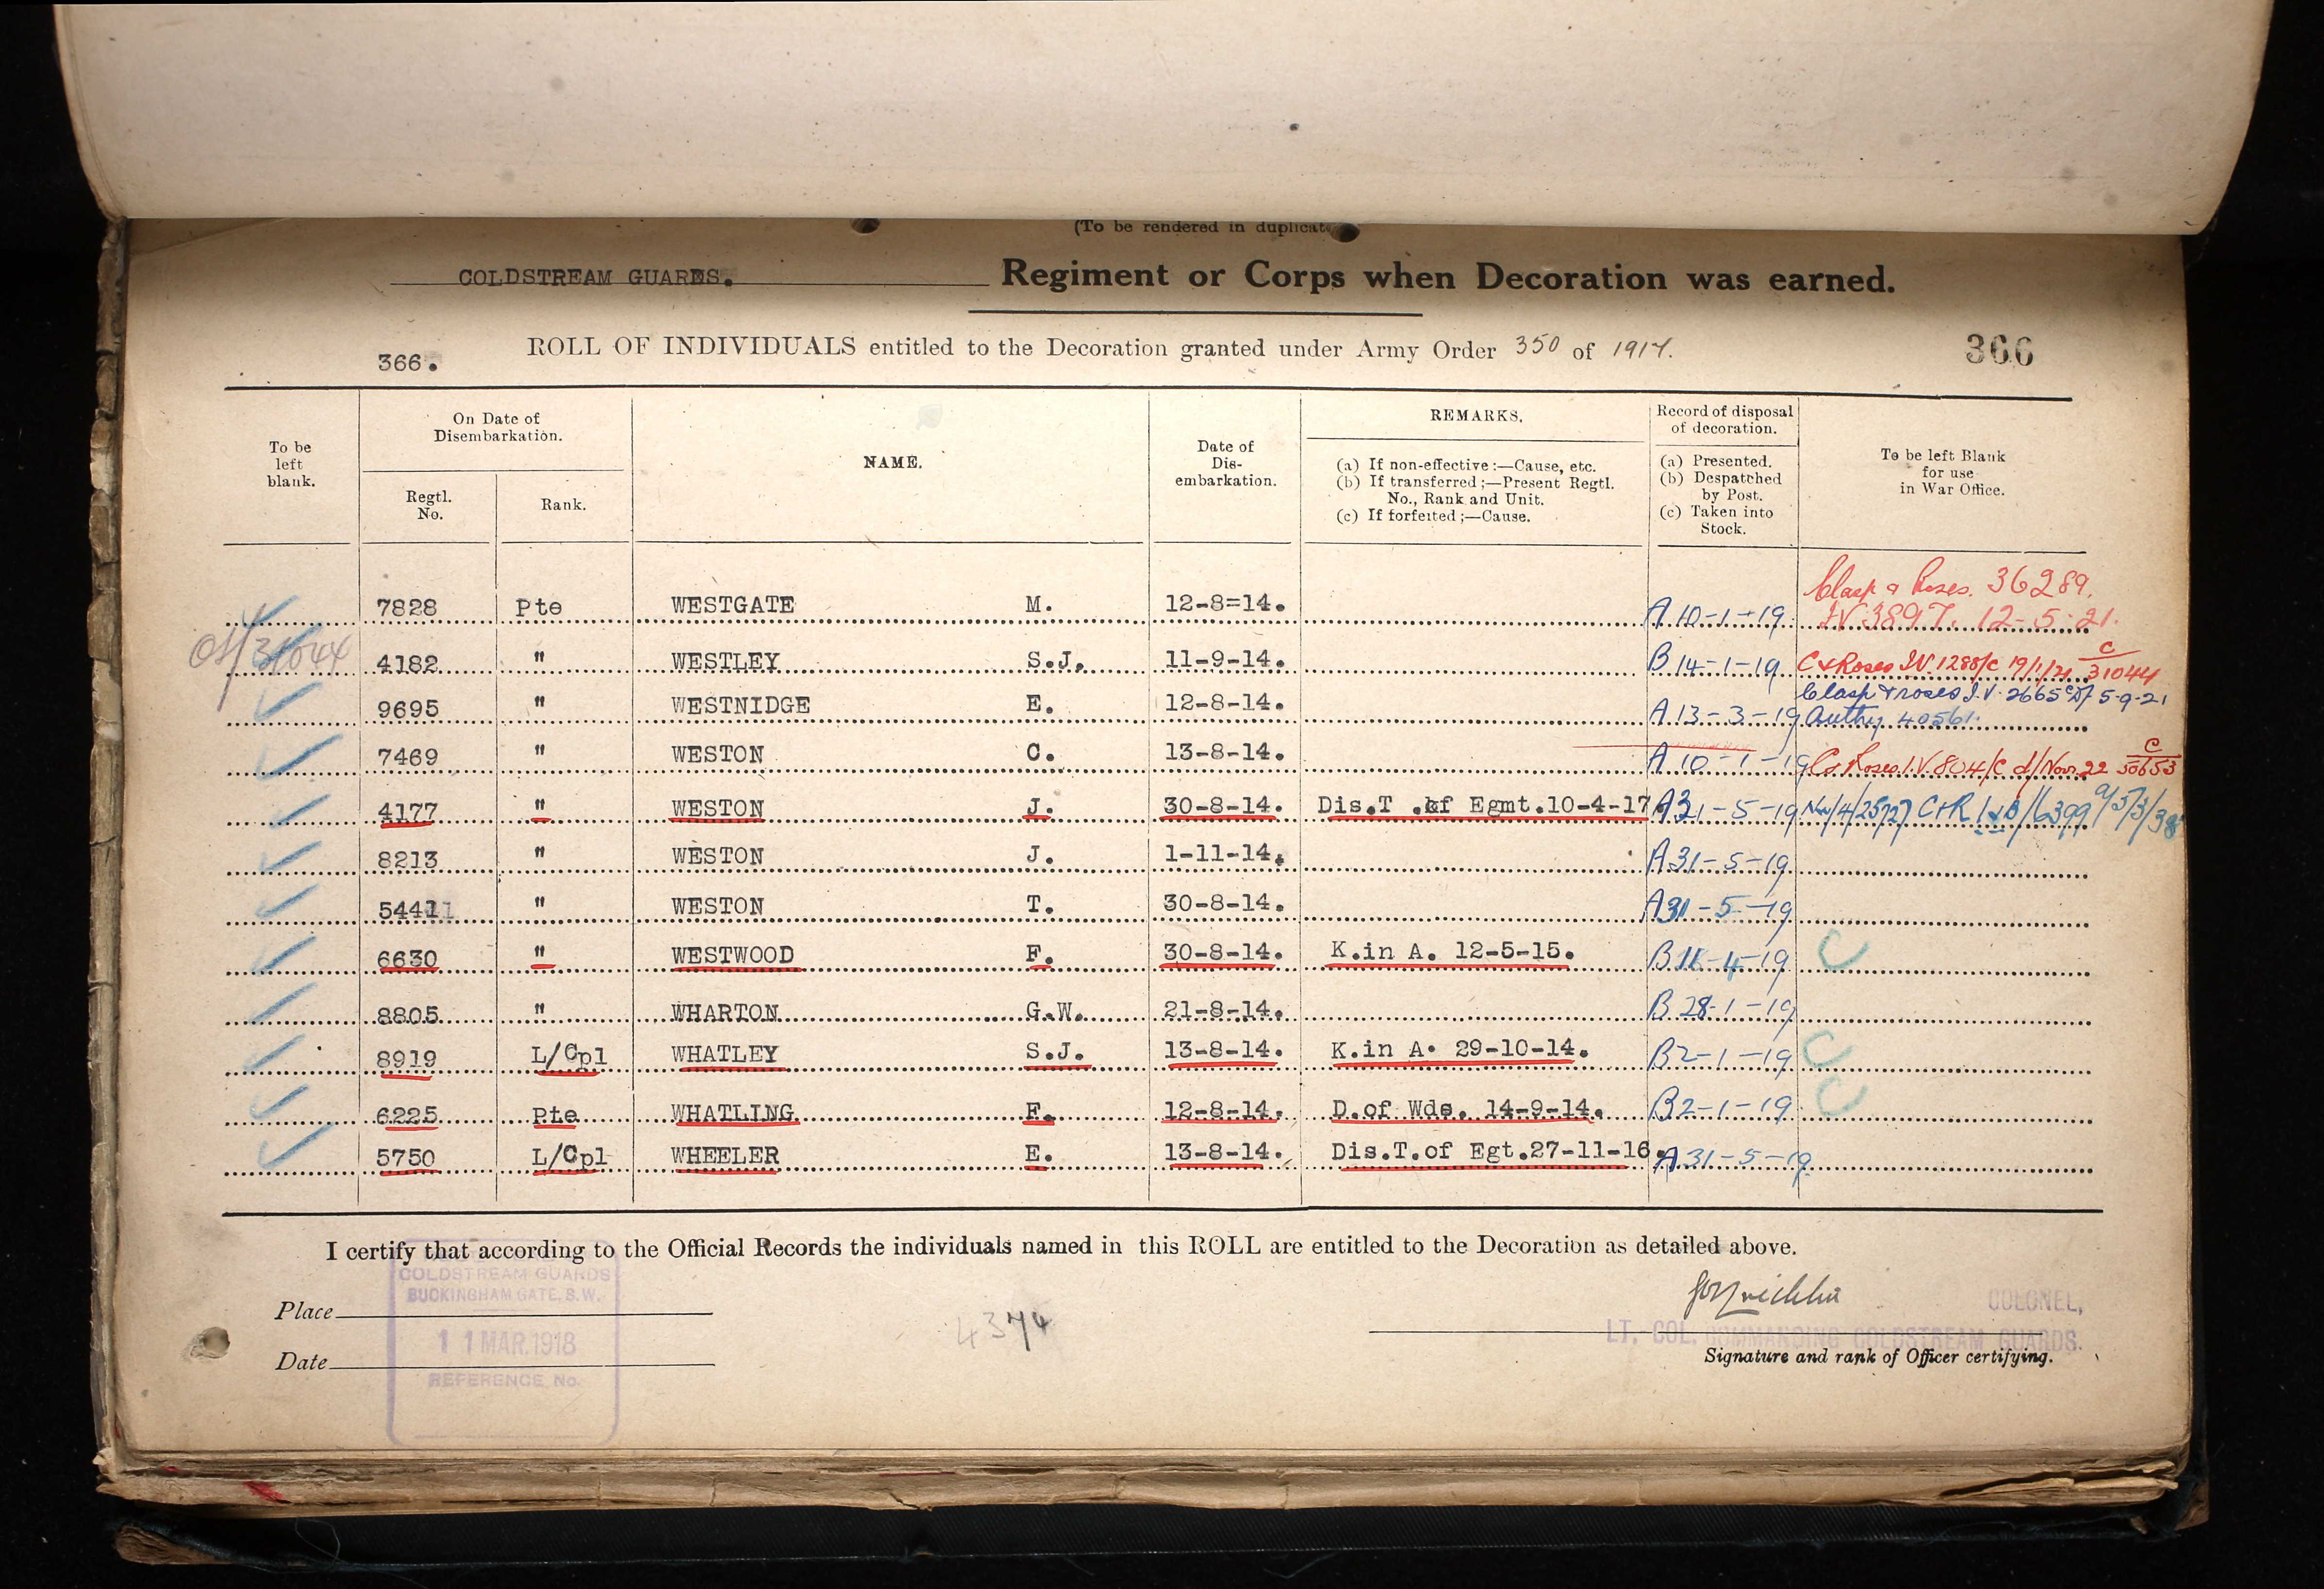 (To be rendered in duplicate
COLDSTREAM GUARDS. Regiment or Corps when Decoration was earned.
366. ROLL OF INDIVIDUALS entitled to the Decoration granted under Army Order 350 of 1917. 366
To be left blank.
On Date of Disembarkation.
Regtl. No.
Rank.
NAME.
Date of Dis-embarkation.
REMARKS.
(a) If non-effective:—Cause, etc.
(b) If transferred;—Present Regtl. No., Rank and Unit.
(c) If forfeited;—Cause.
Record of disposal of decoration.
(a) Presented.
(b) Despatched by Post.
(c) Taken into Stock.
To be left Blank for use in War Office.
7828 Pte WESTGATE M. 12-8=14. A 10-1-19 Clasp & Roses. 36289.
IV 3897. 12-5-21.
O/1/31044 4182 " WESTLEY S.J. 11-9-14. B 14-1-19 C & Roses I.V. 1288/C 19/1/21 C/31044
9695 " WESTNIDGE E. 12-8-14. A 13-3-19 Clasp & roses I.V. 2665 5-9-21
Authy 40561.
7469 " WESTON C. 13-8-14. A 10-1-19 C & Roses I.V. 804/C d/Novr. 22 C/50653
4177 " WESTON J. 30-8-14. Dis.T .of Egmt.10-4-17 A 31-5-19 NW/4/25727 C+R 1&B/6399 5/3/38
8213 " WESTON J. 1-11-14. A 31-5-19
5441 " WESTON T. 30-8-14. A 31-5-19
6630 " WESTWOOD F. 30-8-14. K.in A. 12-5-15. B 11-4-19 C
8805 " WHARTON G.W. 21-8-14. B 28-1-19
8919 L/Cpl WHATLEY S.J. 13-8-14. K.in A. 29-10-14. B 2-1-19 C
6225 Pte WHATLING F. 12-8-14. D.of Wds. 14-9-14. B 2-1-19 C
5750 L/Cpl WHEELER E. 13-8-14. Dis.T.of Egt.27-11-16. A 31-5-19
I certify that according to the Official Records the individuals named in this ROLL are entitled to the Decoration as detailed above.
COLDSTREAM GUARDS
BUCKINGHAM GATE, S.W.
11 MAR. 1918
REFERENCE No.
Place
Date
4374
COLONEL,
LT. COL. COMMANDING COLDSTREAM GUARDS.
Signature and rank of Officer certifying.